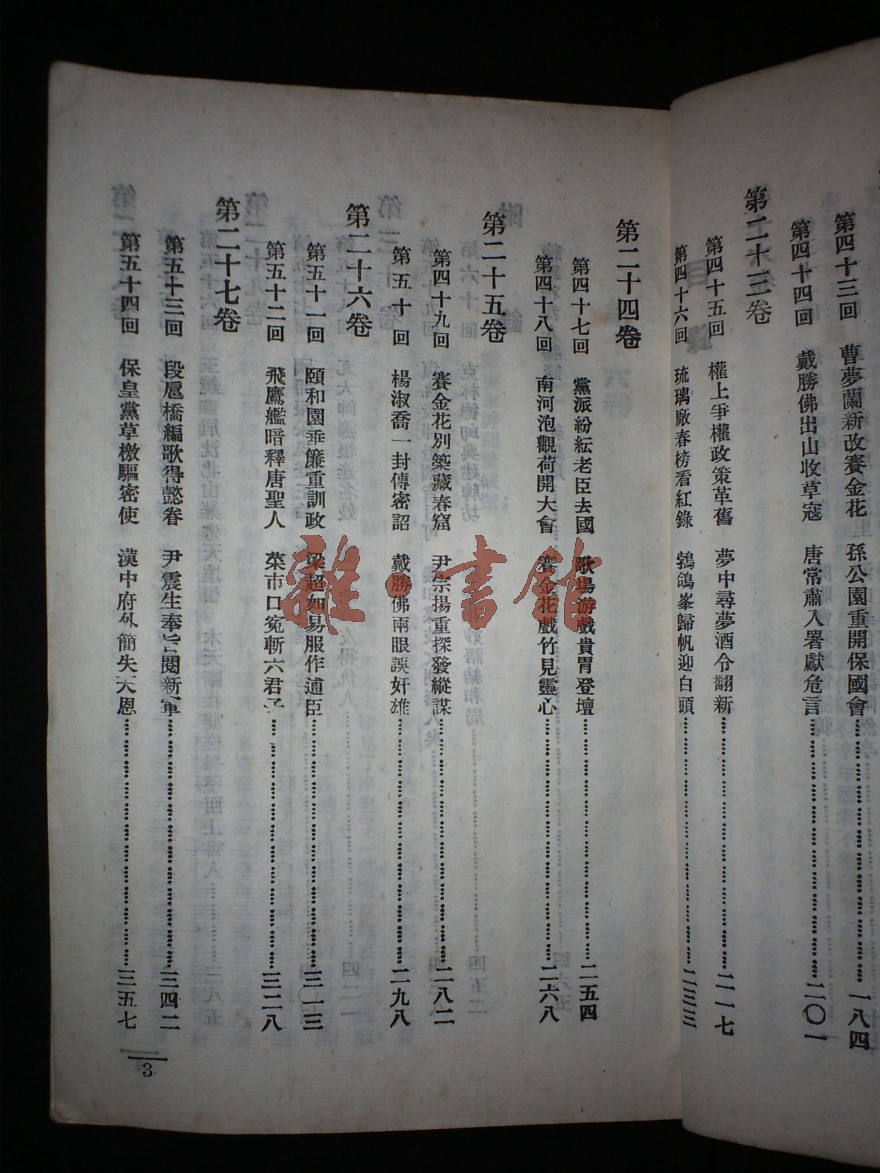 第四十三回　曹夢蘭新改賽金花　孫公園重開保國會……一八四
第四十四回　戴勝佛出山收草寇　唐常肅入署獻危言……二〇一
第二十三卷
第四十五回　權上爭權政策革舊　夢中尋夢酒令翻新……二一七
第四十六回　琉璃廠春榜看紅錄　鶺鴒峯歸帆迎白頭……二三三
第二十四卷
第四十七回　黨派紛紜老臣去國　歌場游戲貴胄登壇……二五四
第四十八回　南河泡觀荷開大會　賽金花戲竹見靈心……二六八
第二十五卷
第四十九回　賽金花別築藏春窟　尹宗揚重探發縱謀……二八二
第五十回　楊淑喬一封傳密詔　戴勝佛兩眼誤奸雄……二九八
第二十六卷
第五十一回　頤和園垂簾重訓政　梁超如易服作逋臣……三一三
第五十二回　飛鷹艦暗釋唐聖人　菜市口冤斬六君子……三二八
第二十七卷
第五十三回　段扈橋編歌得懿眷　尹震生奉旨閱新軍……三四二
第五十四回　保皇黨草檄驅密使　漢中府外簡失天恩……三五七
3
雜·書館